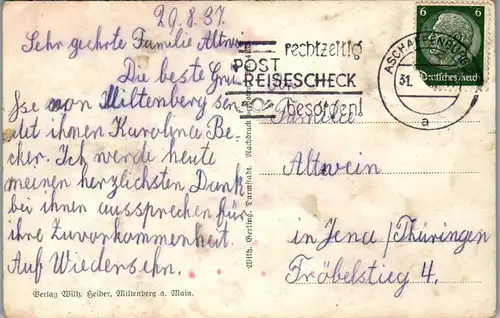 29.8.37.
Sehr geehrte Familie Altwein
Die beste Grü
sse von Miltenberg sen
det ihnen Karolina Be-
cker. Ich werde heute
meinen herzlichsten Dank
bei ihnen aussprechen für
ihre Zuvorkommenheit.
Auf Wiedersehn.
Verlag Wilh. Heider, Miltenberg a. Main.
Wilh. Gerling, Darmstadt. Nachdruck
rechtzeitig
POST
REISESCHECK
besorgen!
ASCHAFFENBURG
31.
a
6 6
Deutsches Reich
Familie
Altwein
in Jena / Thüringen
Fröbelstieg 4.